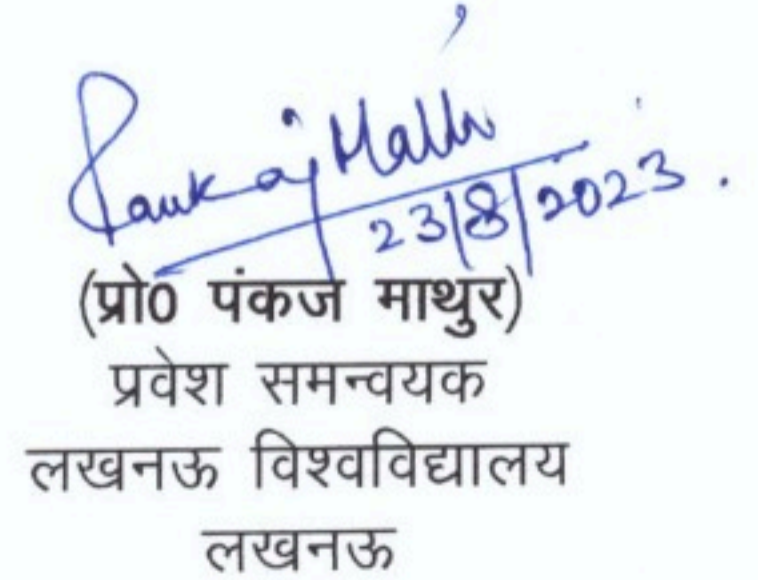 Pankaj Math
23/8/2023.
(प्रो0 पंकज माथुर)
प्रवेश समन्वयक
लखनऊ विश्वविद्यालय
लखनऊ